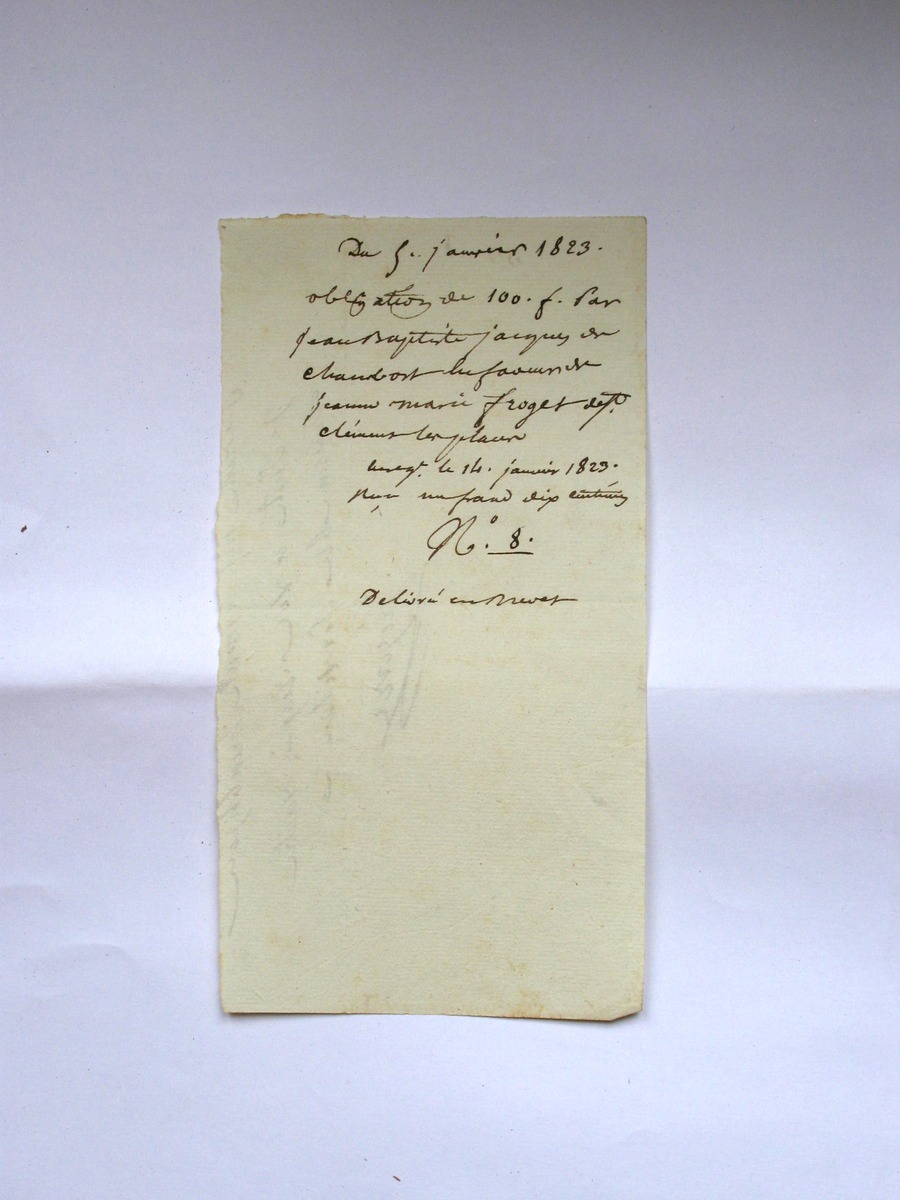 Du 5. janvier 1823.
obligation de 100. f. Par
jean Baptiste jacques de
chambost en faveur de
jeanne marie froget de st.
clément les places
enregt. le 14. janvier 1823.
Reçu un franc dix centimes
N.o 8.
Delivré en Brevet